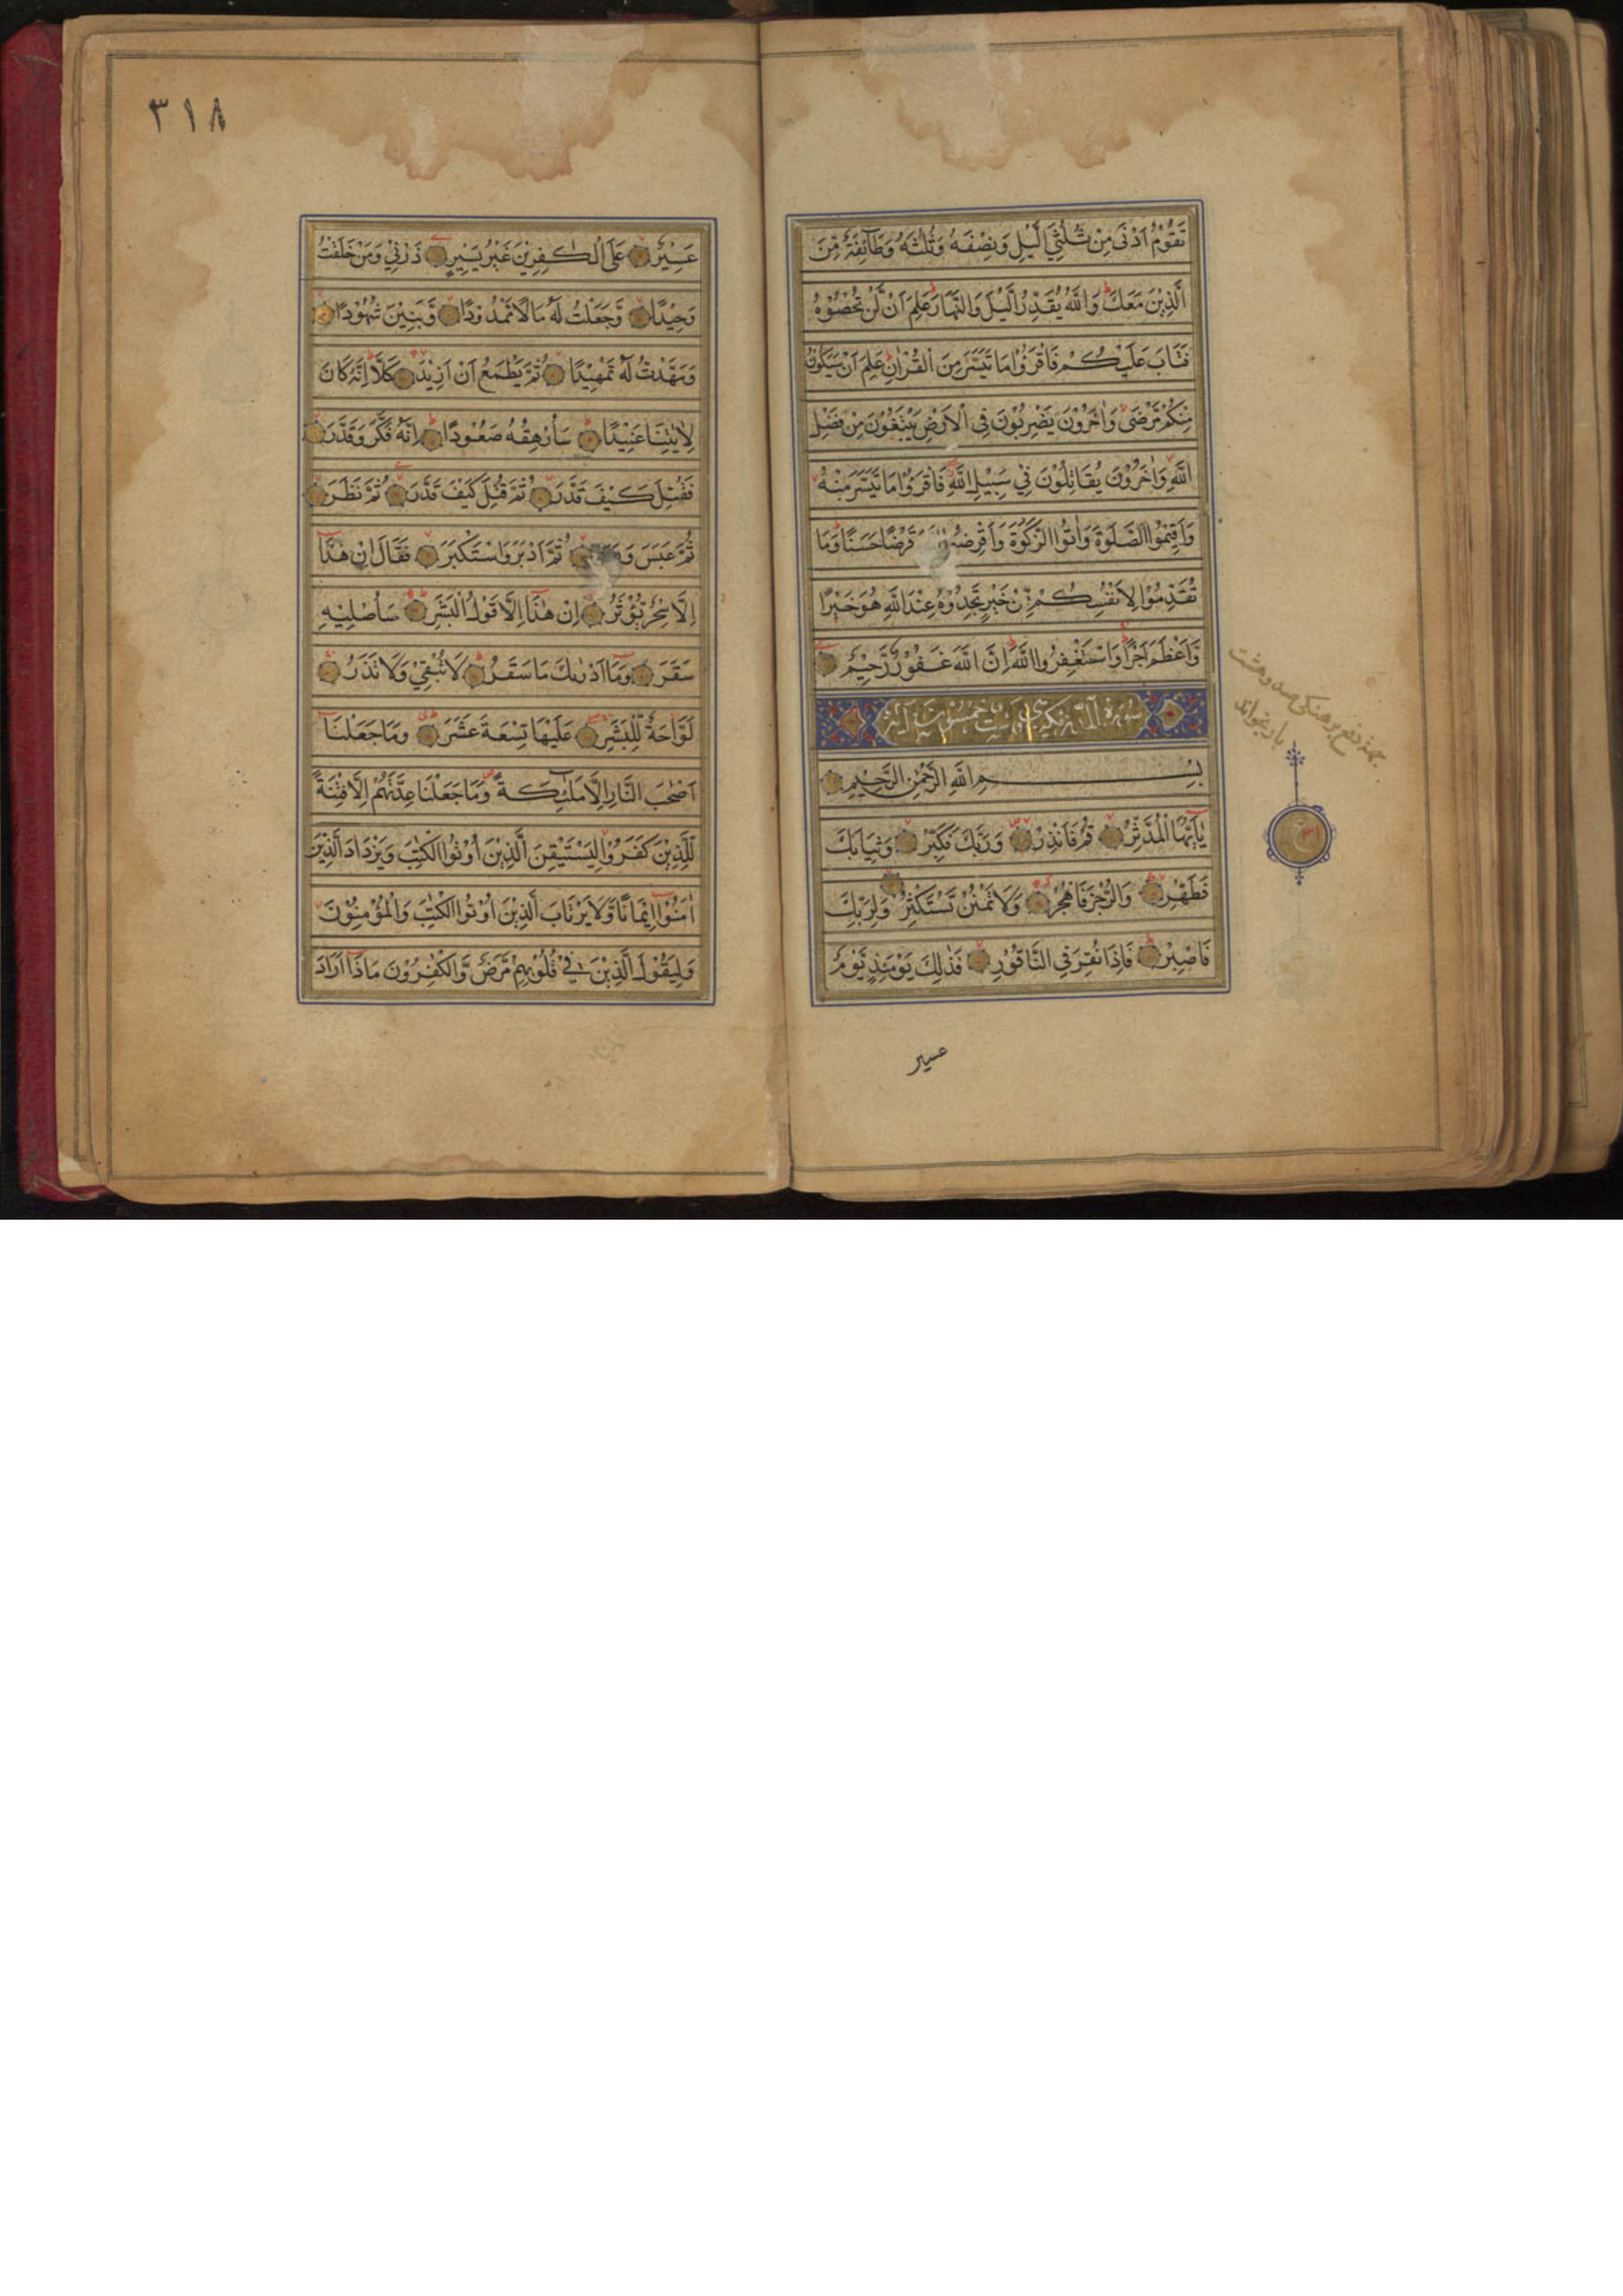 تَقُوْمُ اَدْنٰى مِنْ ثُلُثَيِ الَّيْلِ وَنِصْفَهٗ وَثُلُثَهٗ وَطَآئِفَةٌ مِّنَ
الَّذِيْنَ مَعَكَ وَاللّٰهُ يُقَدِّرُ الَّيْلَ وَالنَّهَارَ عَلِمَ اَنْ لَّنْ تُحْصُوْهُ
فَتَابَ عَلَيْكُمْ فَاقْرَؤُا مَا تَيَسَّرَ مِنَ الْقُرْاٰنِ عَلِمَ اَنْ سَيَكُوْنُ
مِنْكُمْ مَّرْضٰى وَاٰخَرُوْنَ يَضْرِبُوْنَ فِى الْاَرْضِ يَبْتَغُوْنَ مِنْ فَضْلِ
اللّٰهِ وَاٰخَرُوْنَ يُقَاتِلُوْنَ فِيْ سَبِيْلِ اللّٰهِ فَاقْرَؤُا مَا تَيَسَّرَ مِنْهُ
وَاَقِيْمُوا الصَّلٰوةَ وَاٰتُوا الزَّكٰوةَ وَاَقْرِضُوا قَرْضًا حَسَنًا وَمَا
تُقَدِّمُوْا لِاَنْفُسِكُمْ مِّنْ خَيْرٍ تَجِدُوْهُ عِنْدَ اللّٰهِ هُوَ خَيْرًا
وَّاَعْظَمَ اَجْرًا وَاسْتَغْفِرُوا اللّٰهَ اِنَّ اللّٰهَ غَفُوْرٌ رَّحِيْمٌ
بِسْمِ اللّٰهِ الرَّحْمٰنِ الرَّحِيْمِ
يٰٓاَيُّهَا الْمُدَّثِّرُ قُمْ فَاَنْذِرْ وَرَبَّكَ فَكَبِّرْ وَثِيَابَكَ
فَطَهِّرْ وَالرُّجْزَ فَاهْجُرْ وَلَا تَمْنُنْ تَسْتَكْثِرُ وَلِرَبِّكَ
فَاصْبِرْ فَاِذَا نُقِرَ فِى النَّاقُوْرِ فَذٰلِكَ يَوْمَئِذٍ يَّوْمٌ
عسير
٣١٨
عَسِيْرٌ عَلَى الْكٰفِرِيْنَ غَيْرُ يَسِيْرٍ ذَرْنِيْ وَمَنْ خَلَقْتُ
وَحِيْدًا وَّجَعَلْتُ لَهٗ مَالًا مَّمْدُوْدًا وَّبَنِيْنَ شُهُوْدًا
وَّمَهَّدْتُ لَهٗ تَمْهِيْدًا ثُمَّ يَطْمَعُ اَنْ اَزِيْدَ كَلَّا اِنَّهٗ كَانَ
لِاٰيٰتِنَا عَنِيْدًا سَاُرْهِقُهٗ صَعُوْدًا اِنَّهٗ فَكَّرَ وَقَدَّرَ
فَقُتِلَ كَيْفَ قَدَّرَ ثُمَّ قُتِلَ كَيْفَ قَدَّرَ ثُمَّ نَظَرَ
ثُمَّ عَبَسَ ثُمَّ اَدْبَرَ وَاسْتَكْبَرَ فَقَالَ اِنْ هٰذَا
اِلَّا سِحْرٌ يُّؤْثَرُ اِنْ هٰذَا اِلَّا قَوْلُ الْبَشَرِ سَاُصْلِيْهِ
سَقَرَ وَمَا اَدْرٰىكَ مَا سَقَرُ لَا تُبْقِيْ وَلَا تَذَرُ
لَوَّاحَةٌ لِّلْبَشَرِ عَلَيْهَا تِسْعَةَ عَشَرَ وَمَا جَعَلْنَا
اَصْحٰبَ النَّارِ اِلَّا مَلٰٓئِكَةً وَّمَا جَعَلْنَا عِدَّتَهُمْ اِلَّا فِتْنَةً
لِّلَّذِيْنَ كَفَرُوْا لِيَسْتَيْقِنَ الَّذِيْنَ اُوْتُوا الْكِتٰبَ وَيَزْدَادَ الَّذِيْنَ
اٰمَنُوْا اِيْمَانًا وَّلَا يَرْتَابَ الَّذِيْنَ اُوْتُوا الْكِتٰبَ وَالْمُؤْمِنُوْنَ
وَلِيَقُوْلَ الَّذِيْنَ فِيْ قُلُوْبِهِمْ مَّرَضٌ وَّالْكٰفِرُوْنَ مَاذَا اَرَادَ